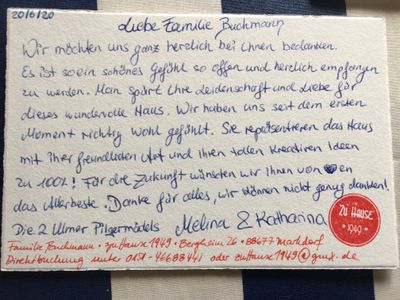 20/6/20
Liebe Familie Buchmann
Wir möchten uns ganz herzlich bei Ihnen bedanken.
Es ist so ein schönes Gefühl so offen und herzlich empfangen
zu werden. Man spürt Ihre Leidenschaft und Liebe für
dieses wundervolle Haus. Wir haben uns seit dem ersten
Moment richtig wohl gefühlt. Sie repräsentieren das Haus
mit ihrer freundlichen Art und Ihren tollen kreativen Ideen
zu 100%! Für die Zukunft wünschen wir Ihnen von ♥en
das Allerbeste. Danke für alles, wir können nicht genug danken!
Die 2 Ulmer Pilgermädels Melina & Katharina
ZU HAUSE
1949
Familie Buchmann · zuHause 1949 · Bergheim 26 · 88677 Markdorf
Direktbuchung unter 0151-46688441 oder zuHause1949@gmx.de